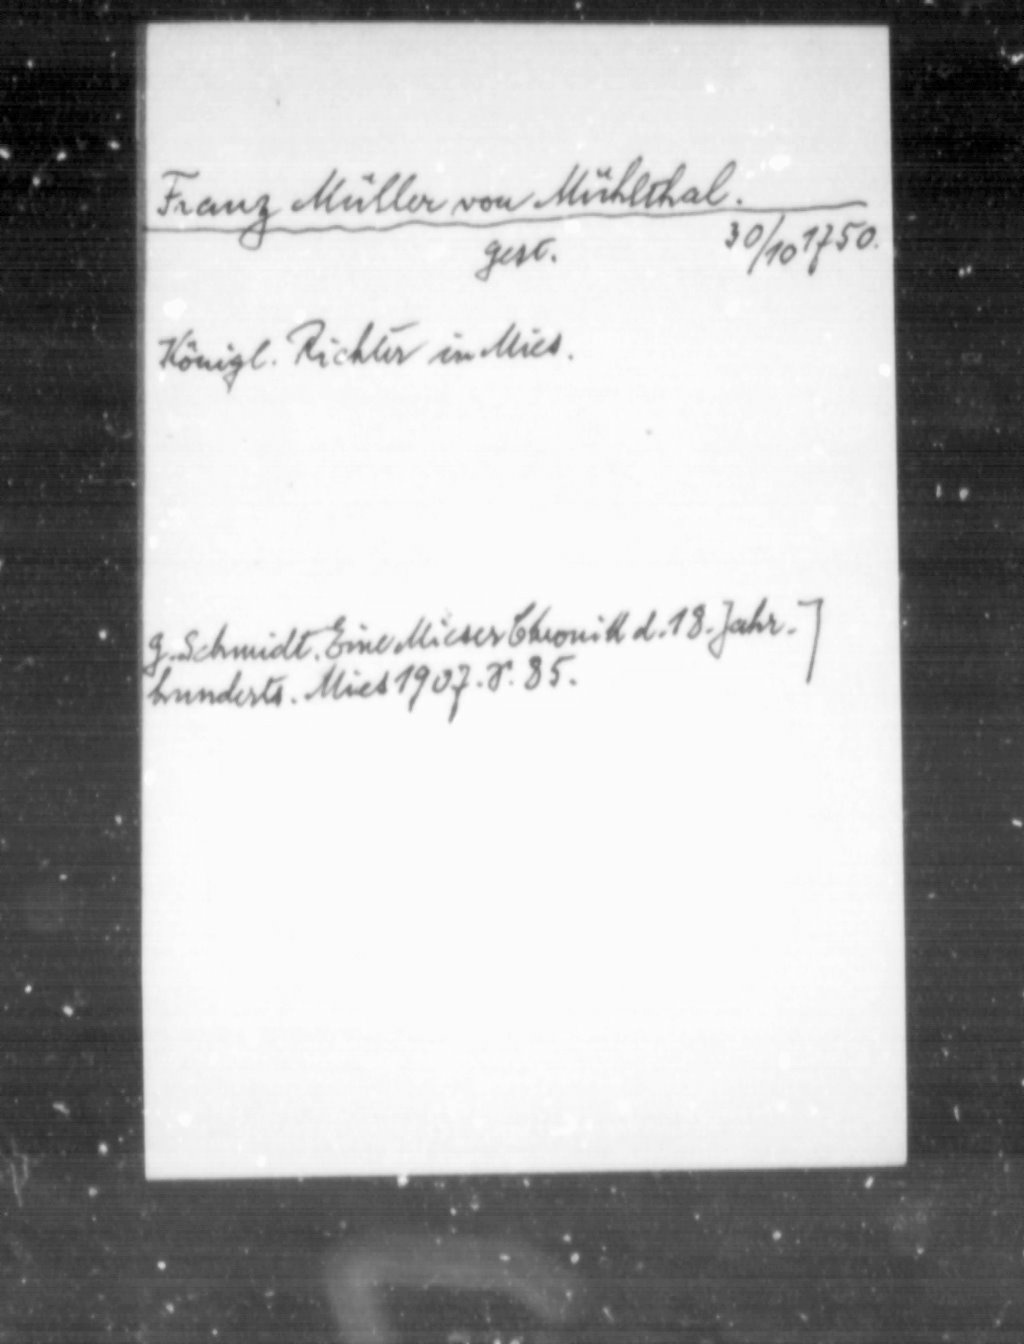 Franz Müller von Mühlthal.
gest. 30/10 1750.
Königl. Richter in Mies.
G. Schmidt. Eine Mieser Chronik d. 18. Jahr-
hunderts. Mies 1907. S. 85.